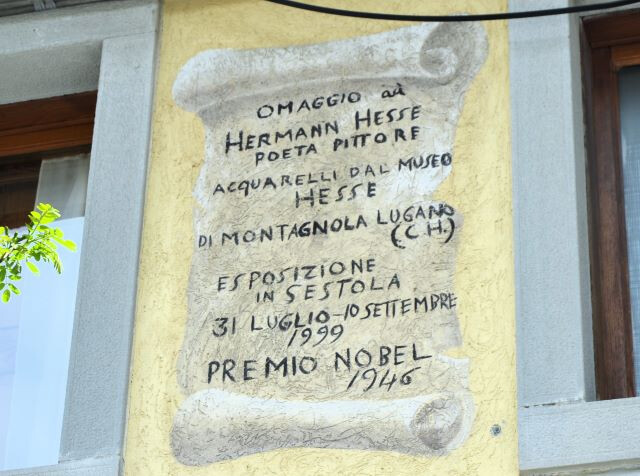 OMAGGIO ad
HERMANN HESSE
POETA PITTORE
ACQUARELLI DAL MUSEO
HESSE
DI MONTAGNOLA LUGANO
(CH.)
ESPOSIZIONE
IN SESTOLA
31 LUGLIO-10 SETTEMBRE
1999
PREMIO NOBEL
1946